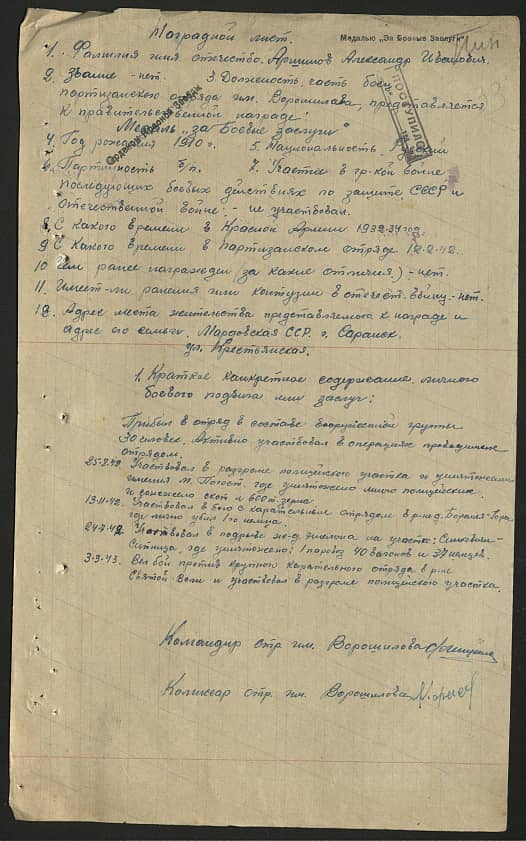 Наградной лист.
Медалью „За Боевые Заслуги"
1. Фамилия имя отечество. Аршинов Александр Иванович.
2. Звание - нет. 3. Должность, часть боец
партизанского отряда им. Ворошилова, представляется
к правительственной награде:
Орденом Красной Звезды
ПОСТУПИЛО
Медаль „за Боевые заслуги"
4. Год рождения 1910 г. 5. Национальность Русский
6. Партийность б/п. 7. Участие в гр-кой войне
последующих боевых действиях по защите СССР и
отечественной войне - не участвовал.
8. С какого времени в Красной Армии 1932-34 год.
9 С какого времени в партизанском отряде 12.2.42.
10 Чем ранее награжден (за какие отличия) - нет.
11. Имеет-ли ранения или контузии в отечест. войну.-нет.
12. Адрес места жительства представляемого к награде и
адрес его семьи. Мардовская ССР. г. Саранск.
ул. Крестьянская.
1. Краткое канкретное содержание личного
боевого подвига или заслуг:
Прибыл в отряд в составе вооруженной группы
30 человек. Активно участвовал в операциях проводимые
отрядом.
25.9.42. Участвовал в разгроме полицейского участка и уничтожении
имения м. Погост. где уничтожено много полицейских
и сожжено скот и 600 т. зерна.
13.11.42. Участвовал в бою с карательным отрядом в р-не д.
где лично убил 1-го немца.
Участвовал в подрыве ж-д. эшелона на участке:
Ситница, где уничтожено: 1 паровоз 40 вагонов и 37 немцев.
3.3.43. Вел бой против крупного карательного отряда в р-не
Святой Воли и участвовал в разгроме полицейского участка.
Командир отр. им. Ворошилова
Комиссар отр. им. Ворошилова